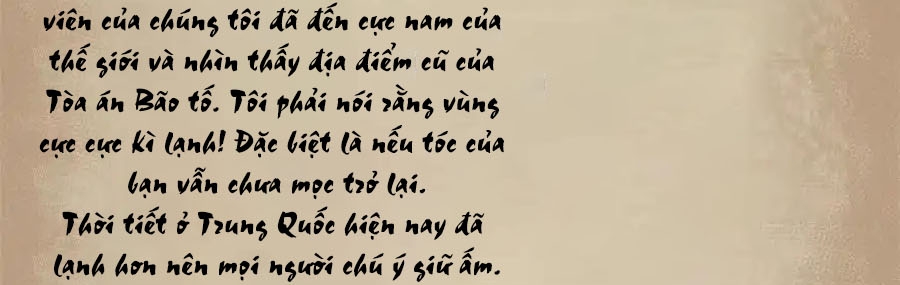 viên của chúng tôi đã đến cực nam của
thế giới và nhìn thấy địa điểm cũ của
Tòa án Bão tố. Tôi phải nói rằng vùng
cực cực kì lạnh! Đặc biệt là nếu tóc của
bạn vẫn chưa mọc trở lại.
Thời tiết ở Trung Quốc hiện nay đã
lạnh hơn nên mọi người chú ý giữ ấm.